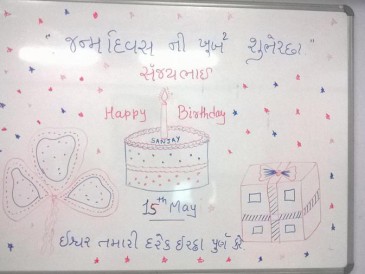 "જન્મદિવસ ની ખુબ² શુભેચ્છા"
સંજયભાઈ
Happy Birthday
SANJAY
15th May
ઈશ્વર તમારી દરેક ઈચ્છા પુર્ણ કરે